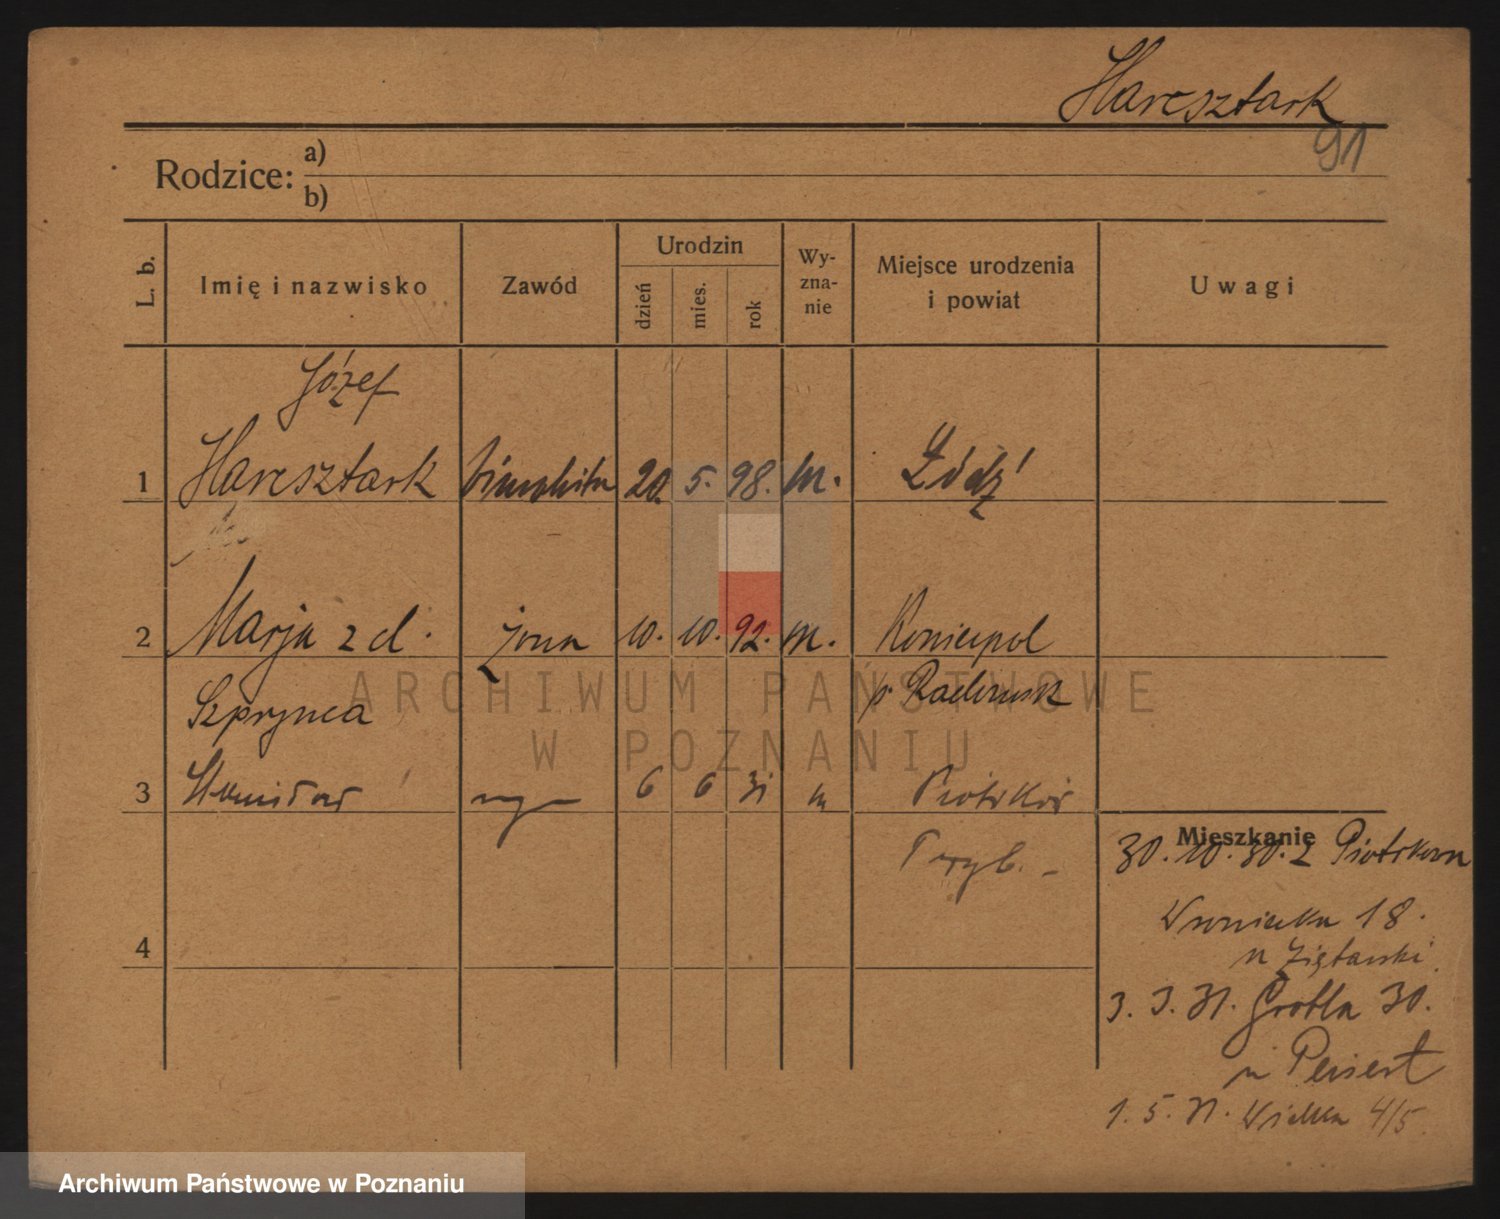 Harcsztark
91
Rodzice: a)
b)
L. b. Imię i nazwisko Zawód Urodzin dzień mies. rok Wy-zna-nie Miejsce urodzenia i powiat Uwagi
Józef
1 Harcsztark 20. 5. 98. m. Łódź
2 Marja z d. żona 10. 10. 92. m. Koniecpol
Szprynca p. Radomsk
3 6 6 31 m Piotrków
Tryb. -
Mieszkanie
30. 10. 30. z Piotrkowa
Wroniecka 18.
u Ziętarski
3. 3. 31. Grobla 30.
u Peisert
1. 5. 31. Wielka 4/5.
4
ARCHIWUM PAŃSTWOWE
W POZNANIU
Archiwum Państwowe w Poznaniu